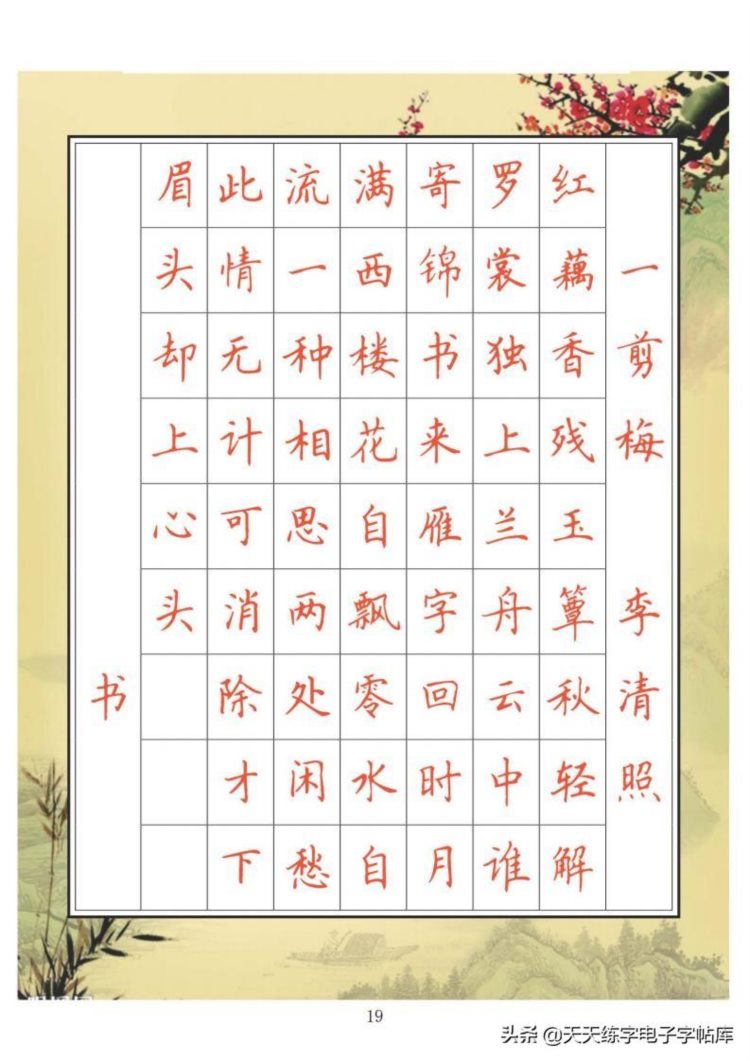 一剪梅 李清照
红藕香残玉簟秋轻解
罗裳独上兰舟云中谁
寄锦书来雁字回时月
满西楼花自飘零水自
流一种相思两处闲愁
此情无计可消除才下
眉头却上心头
书
19
头条 @天天练字电子字帖库